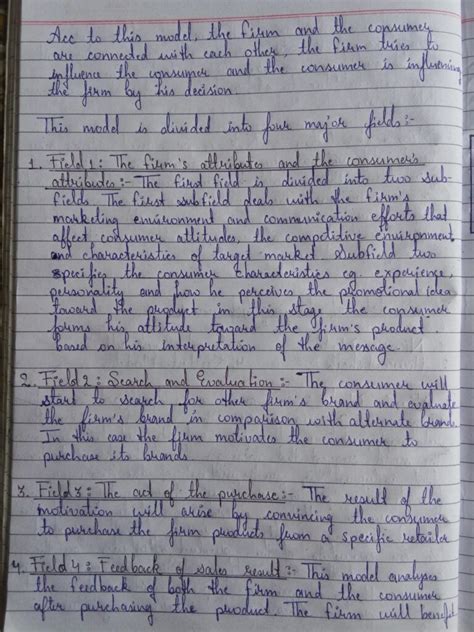 Acc to this model, the firm and the consumer
are connected with each other, the firm tries to
influence the consumer and the consumer is influencing
the firm by his decision.
This model is divided into four major fields:-
1. Field 1: The firm's attributes and the consumer's
attributes:- The first field is divided into two sub-
fields. The first subfield deals with the firm's
marketing environment and communication efforts that
affect consumer attitudes, the competitive environment
and characteristics of target market. Subfield two
specifies the consumer characteristics eg. experience,
personality and how he perceives the promotional idea
toward the product in this stage the consumer
forms his attitude toward the firm's product
based on his interpretation of the message.
2. Field 2: Search and Evaluation :- The consumer will
start to search for other firm's brand and evaluate
the firm's brand in comparison with alternate brand.
In this case the firm motivates the consumer to
purchase its brands.
3. Field 3: The act of the purchase:- The result of the
motivation will arise by convincing the consumer
to purchase the firm products from a specific retailer
4. Field 4: Feedback of sales result:- This model analyses
the feedback of both the firm and the consumer
after purchasing the product. The firm will benefit